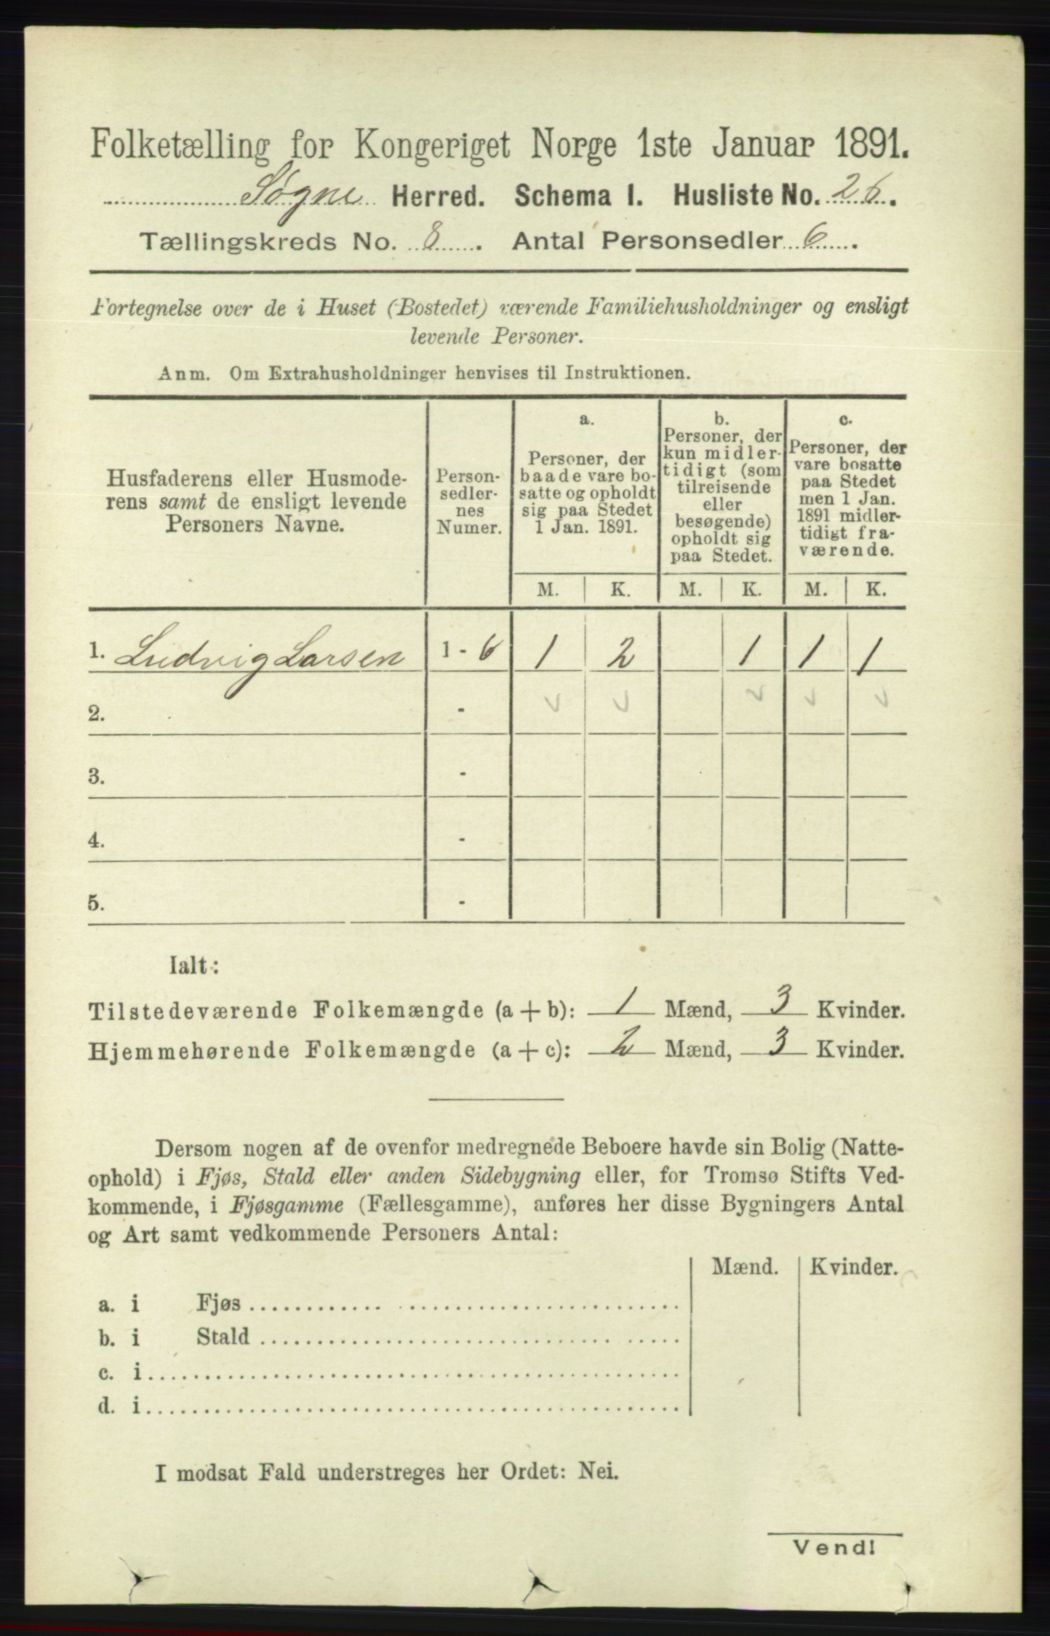 Folketælling for Kongeriget Norge 1ste Januar 1891.
Søgne Herred. Schema I. Husliste No. 26.
Tællingskreds No. 8. Antal Personsedler 6.
Fortegnelse over de i Huset (Bostedet) værende Familiehusholdninger og ensligt
levende Personer.
Anm. Om Extrahusholdninger henvises til Instruktionen.
Husfaderens eller Husmode-
rens samt de ensligt levende
Personers Navne.
Person-
sedler-
nes
Numer.
a.
Personer, der
baade vare bo-
satte og opholdt
sig paa Stedet
1 Jan. 1891.
b.
Personer, der
kun midler-
tidigt (som
tilreisende
eller
besøgende)
opholdt sig
paa Stedet.
c.
Personer, der
vare bosatte
paa Stedet
men 1 Jan.
1891 midler-
tidigt fra-
værende.
M. K. M. K. M. K.
1. Ludvig Larsen 1 - 6 1 2 1 1 1
2. -
3. -
4. -
5. -
Ialt:
Tilstedeværende Folkemængde (a + b): 1 Mænd, 3 Kvinder.
Hjemmehørende Folkemængde (a + c): 2 Mænd, 3 Kvinder.
Dersom nogen af de ovenfor medregnede Beboere havde sin Bolig (Natte-
ophold) i Fjøs, Stald eller anden Sidebygning eller, for Tromsø Stifts Ved-
kommende, i Fjøsgamme (Fællesgamme), anføres her disse Bygningers Antal
og Art samt vedkommende Personers Antal:
Mænd. Kvinder.
a. i Fjøs
b. i Stald
c. i
d. i
I modsat Fald understreges her Ordet: Nei.
Vend!